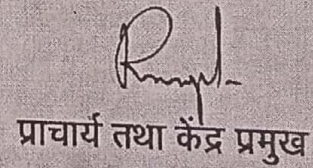 प्राचार्य तथा केंद्र प्रमुख